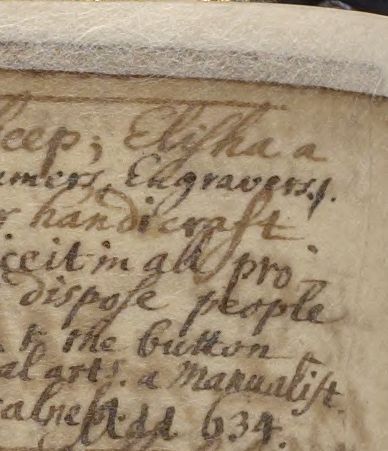 eep; Elisha a
mers, Engravers,.
handicraft
ceit in all pro-
dispose people
to the button
al arts. a Manualist.
Add 634.